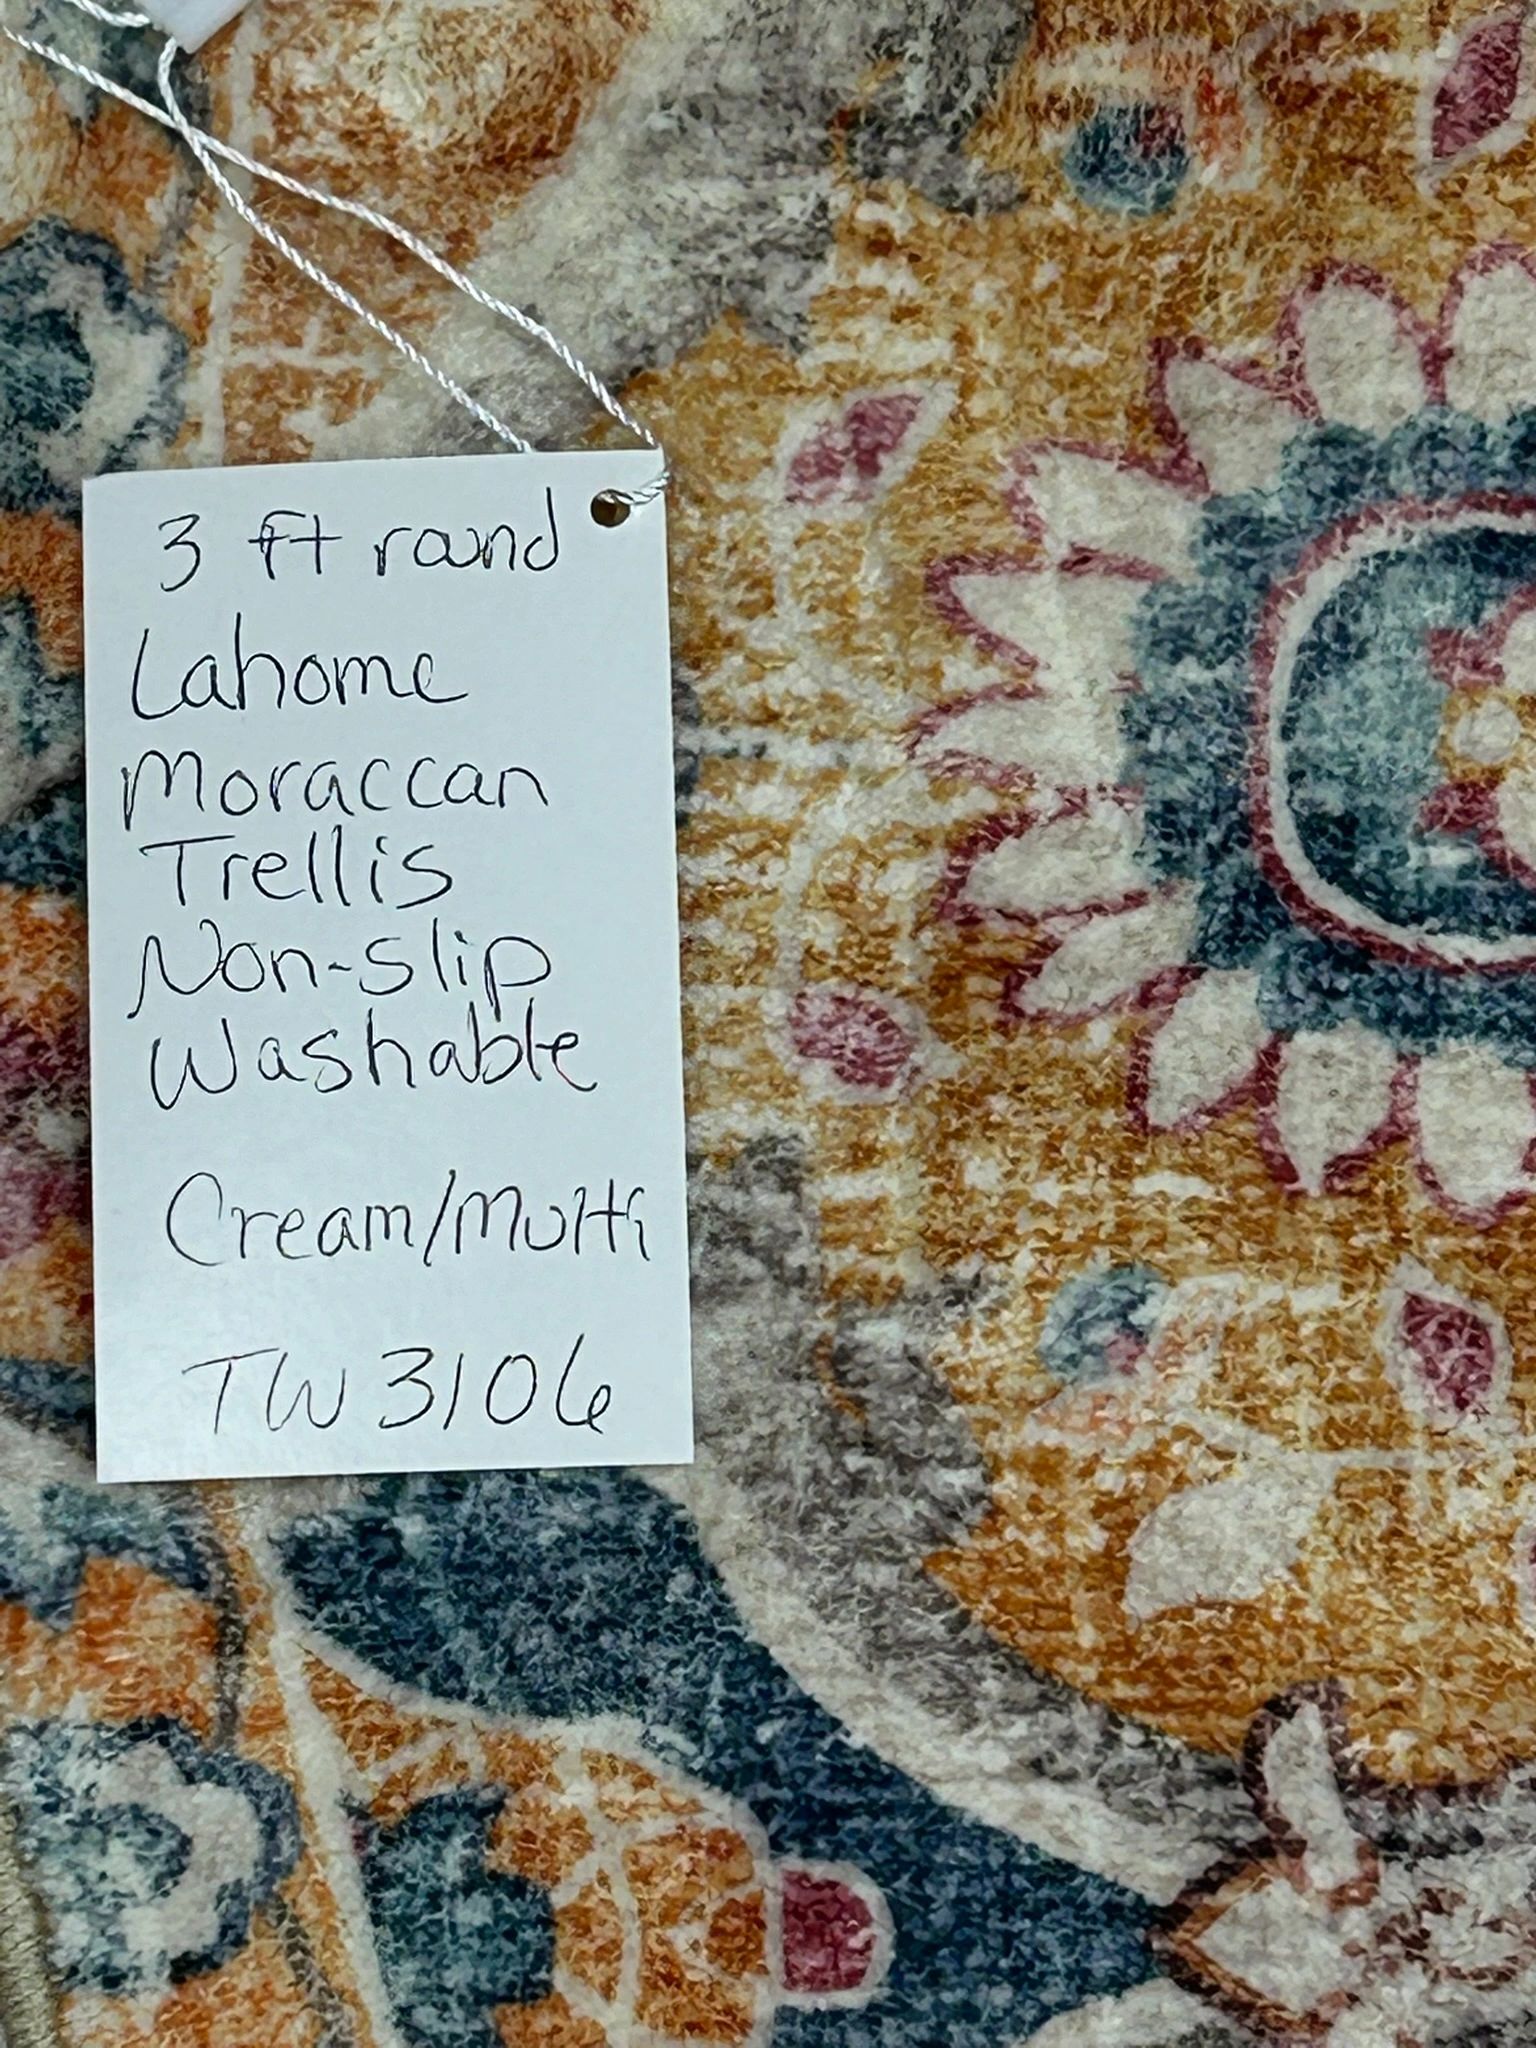 3 ft round
Lahome
Moraccan
Trellis
Non-slip
Washable
Cream/Multi
TW3106